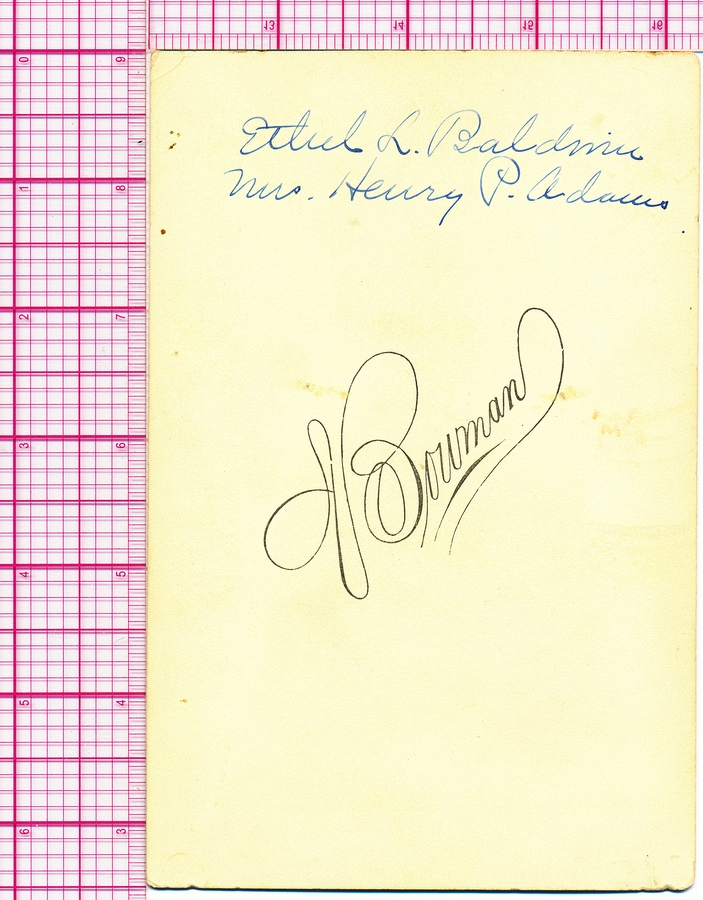 13 14 15 16
0 9
1 8
2 7
3 6
4 5
5 4
6 3
Ethel L. Baldwin
Mrs. Henry P. Adams
Bowman